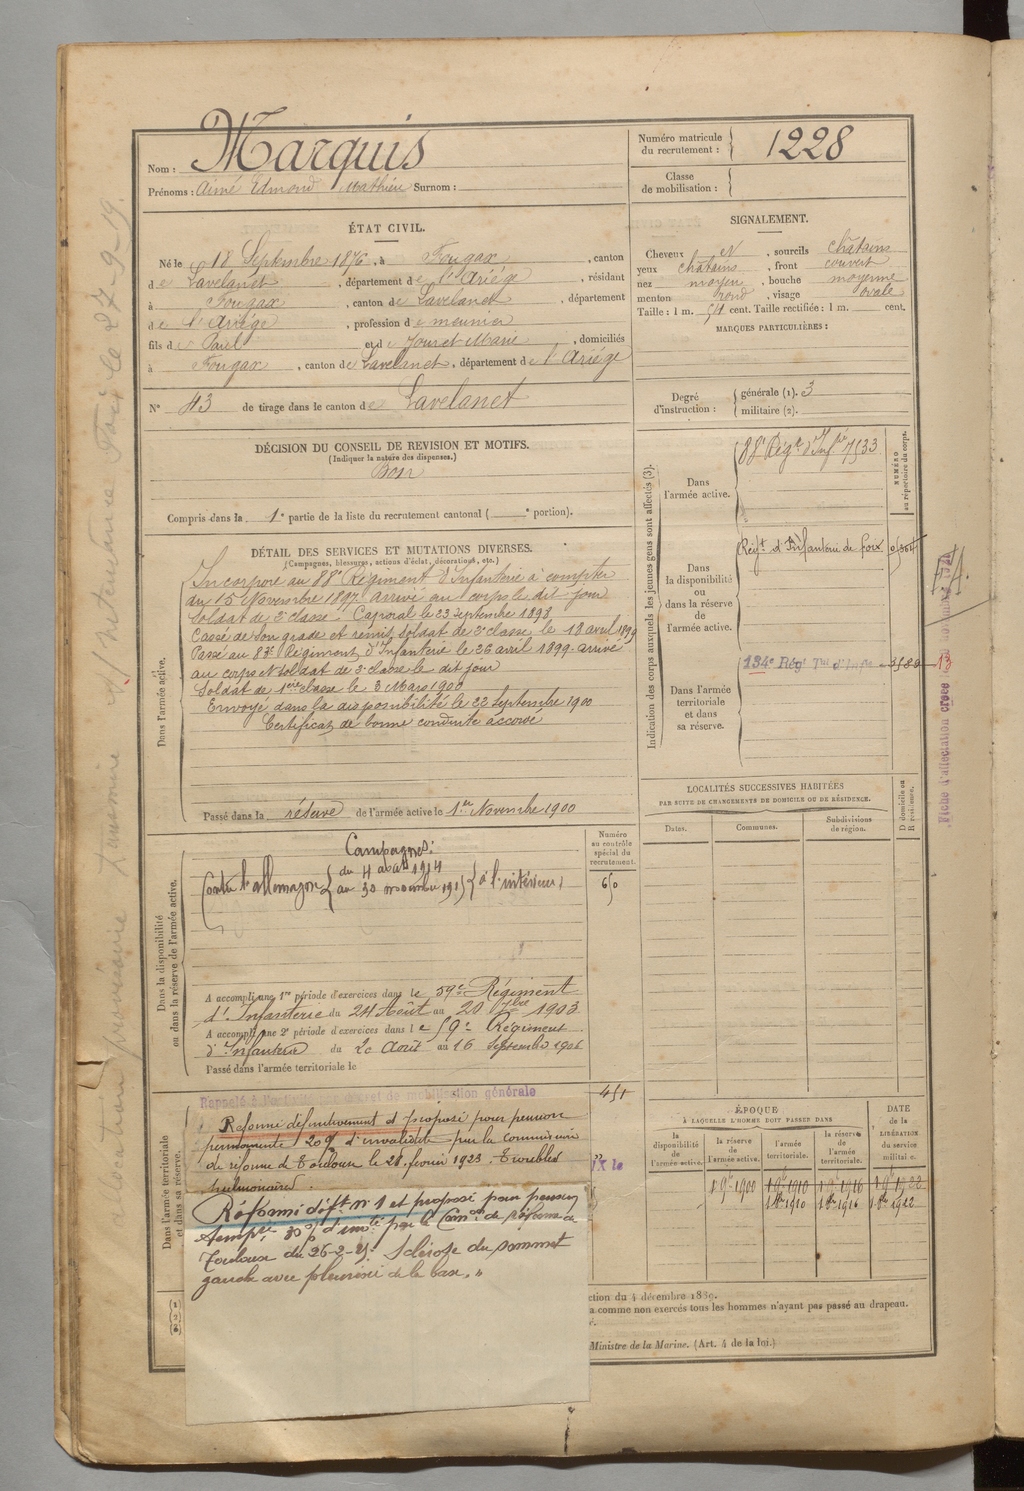 Nom : Marquis
Prénoms : Aimé Edmond Mathieu Surnom :
Numéro matricule du recrutement : 1228
Classe de mobilisation :
ÉTAT CIVIL.
Né le 18 Septembre 1876, à Fougax, canton
de Lavelanet, département de l'Ariége, résidant
à Fougax, canton de Lavelanet, département
de l'Ariége, profession de meunier
fils de Paul et de Jouret Marie, domiciliés
à Fougax, canton de Lavelanet, département de l'Ariége
N° 43 de tirage dans le canton de Lavelanet
SIGNALEMENT.
Cheveux et, sourcils châtains
yeux châtains, front couvert
nez moyen, bouche moyenne
menton rond, visage ovale
Taille : 1 m. 54 cent. Taille rectifiée : 1 m. cent.
MARQUES PARTICULIÈRES :
Degré d'instruction : générale (1). 3
militaire (2).
DÉCISION DU CONSEIL DE REVISION ET MOTIFS.
(Indiquer la nature des dispenses.)
Bon
Compris dans la 1e partie de la liste du recrutement cantonal ( e portion).
DÉTAIL DES SERVICES ET MUTATIONS DIVERSES.
(Campagnes, blessures, actions d'éclat, décorations, etc.)
Dans l'armée active.
Incorporé au 88e Régiment d'Infanterie à compter
du 15 Novembre 1897. arrivé au corps le dit jour
soldat de 2e classe. Caporal le 23 Septembre 1898
Cassé de son grade et remis soldat de 2e classe le 18 avril 1899
Passé au 83e Régiment d'Infanterie le 26 avril 1899 arrivé
au corps et soldat de 2e classe le dit jour
Soldat de 1ère classe le 3 Mars 1900
Envoyé dans la disponibilité le 22 Septembre 1900
Certificat de bonne conduite accordé
Passé dans la réserve de l'armée active le 1er Novembre 1900
Indication des corps auxquels les jeunes gens sont affectés (3).
NUMÉRO au répertoire du corps.
Dans l'armée active.
88e Régt d'Infie 7533
Dans la disponibilité ou dans la réserve de l'armée active.
Régt d'Infanterie de Foix
Dans l'armée territoriale et dans sa réserve.
134e Régt Tal d'Infie
13
LOCALITÉS SUCCESSIVES HABITÉES
PAR SUITE DE CHANGEMENTS DE DOMICILE OU DE RÉSIDENCE.
Dates. Communes. Subdivisions de région. D domicile ou R résidence.
Numéro au contrôle spécial du recrutement.
Dans la disponibilité ou dans la réserve de l'armée active.
Campagnes:
Contre l'allemagne du 4 août 1914
au 30 novembre 1915 à l'intérieur
650
A accompli une 1re période d'exercices dans le 59e Régiment
d'Infanterie du 24 Août au 20 7bre 1903
A accompli une 2e période d'exercices dans le 59e Régiment
d'Infanterie du 20 Août au 16 Septembre 1906
Passé dans l'armée territoriale le
Dans l'armée territoriale et dans sa réserve.
Rappelé à l'activité par décret de mobilisation générale
451
Réformé définitivement et proposé pour pension
permanente 20% d'invalidité par la commission
de réforme de Toulouse le 28 février 1923. Troubles
pulmonaires.
Réformé déft n° 1 et proposé pour pension
tempre 30% d'invté par la Comon de réforme de
Toulouse du 26-2-21. Sclérose du sommet
gauche avec pleurésie de la base. "
ÉPOQUE
À LAQUELLE L'HOMME DOIT PASSER DANS
DATE de la LIBÉRATION du service militaire.
la disponibilité de l'armée active. la réserve de l'armée active. l'armée territoriale. la réserve de l'armée territoriale.
1 9e 1900 1 9e 1910 1 9e 1916 1 9e 1922
1 8bre 1910 1 8bre 1916 1 8bre 1912
ction du 4 décembre 1889.
a comme non exercés tous les hommes n'ayant pas passé au drapeau.
Ministre de la Marine. (Art. 4 de la loi.)
Fiche d'affectation créée
27-9-19